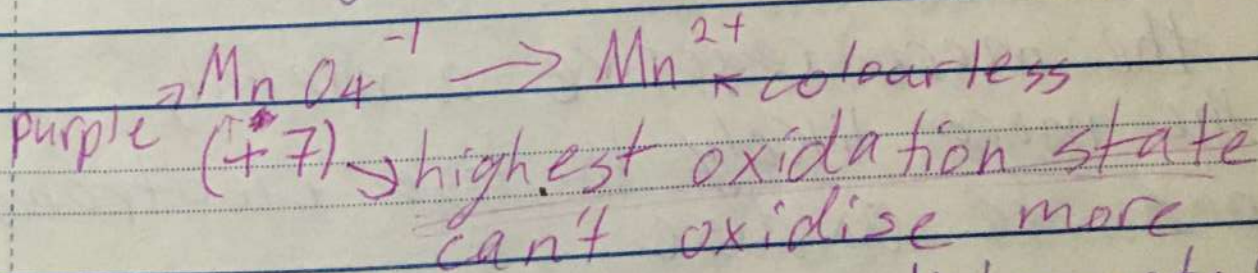 MnO4⁻¹ → Mn²⁺ ↖ colourless
purple ↗ (+7) → highest oxidation state
can't oxidise more